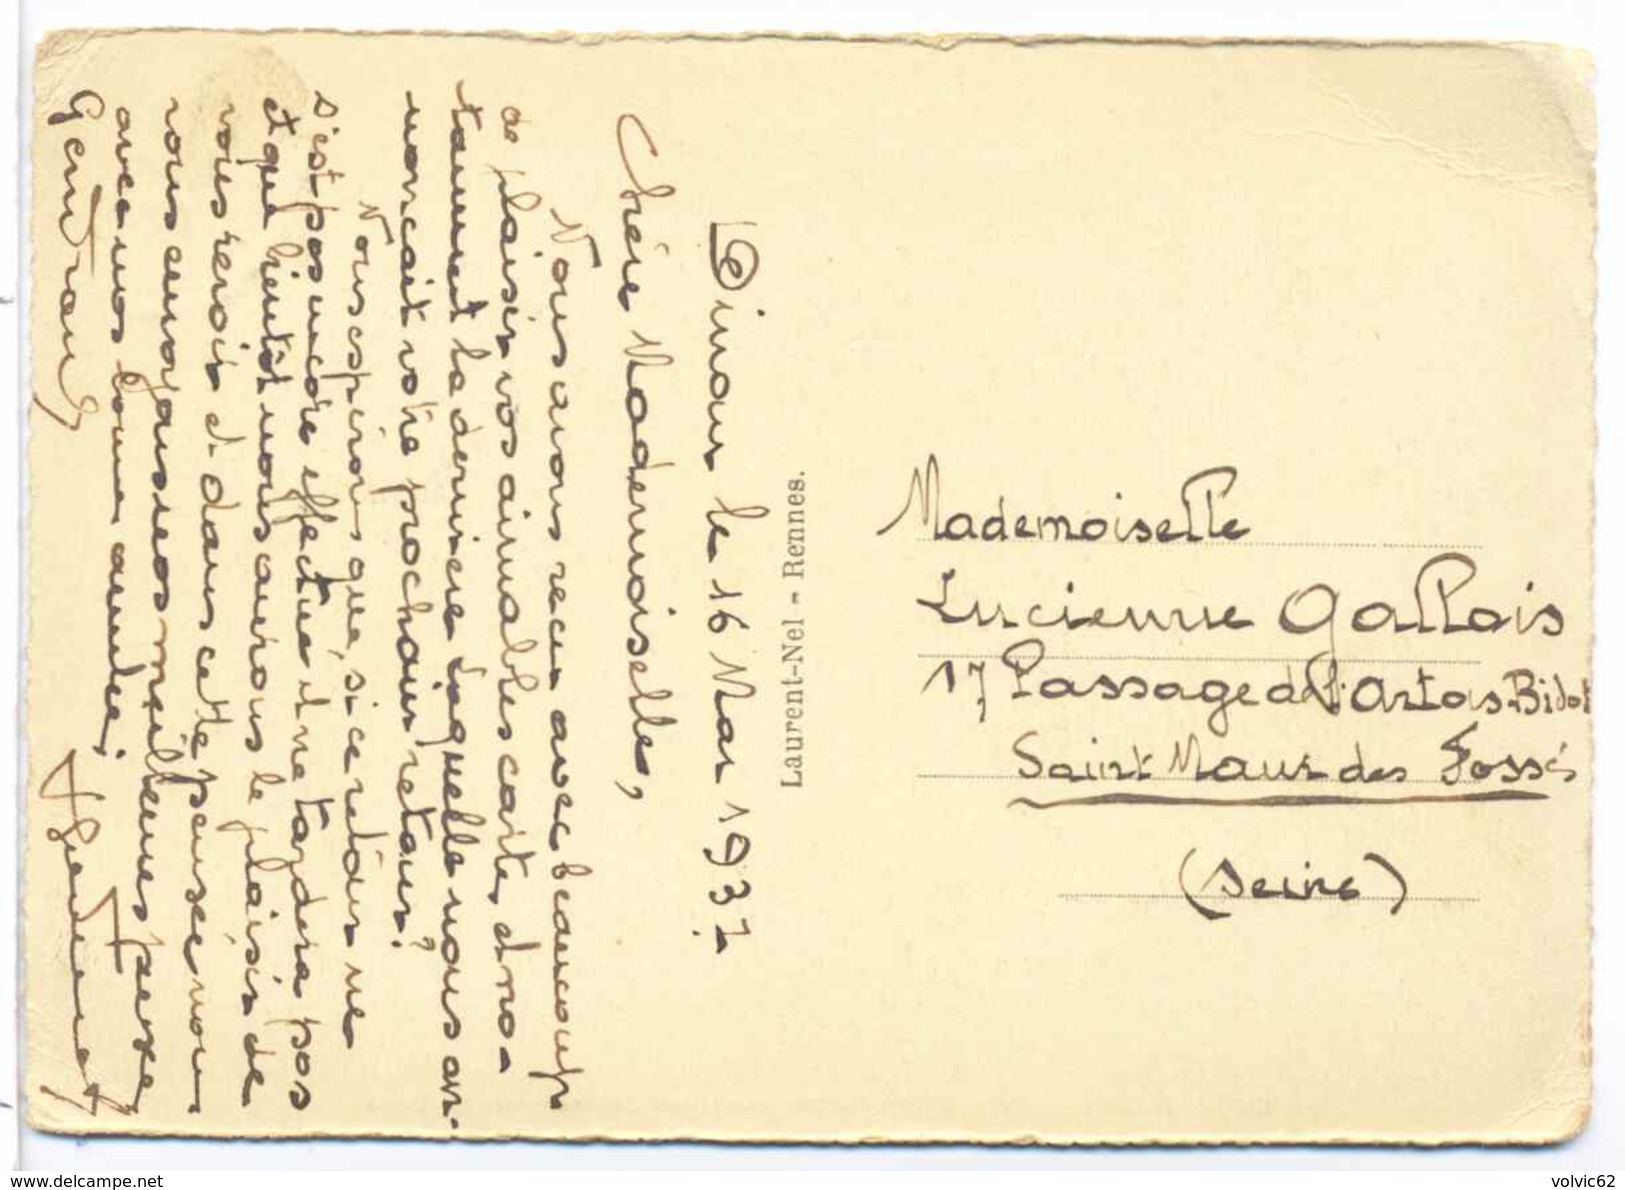 Dinar le 16 Mar 1937
Chère Mademoiselle,
Nous avons reçu avec beaucoup
de plaisir vos aimables cartes, et no-
tamment la dernière laquelle nous an-
nonçait votre prochain retour!
Nous espérons que, si ce retour ne
s'est pas encore effectué il ne tardera pas
et que bientôt nous aurons le plaisir de
vous revoir et dans cette pensée nous
vous envoyons nos meilleures pensées
avec nos bonnes amitiés
Laurent-Nel - Rennes.
Mademoiselle
Lucienne Gallois
17 Passage de l'Artois Bidot
Saint Maur des Fossés
(Seine)
www.delcampe.net
volvic62